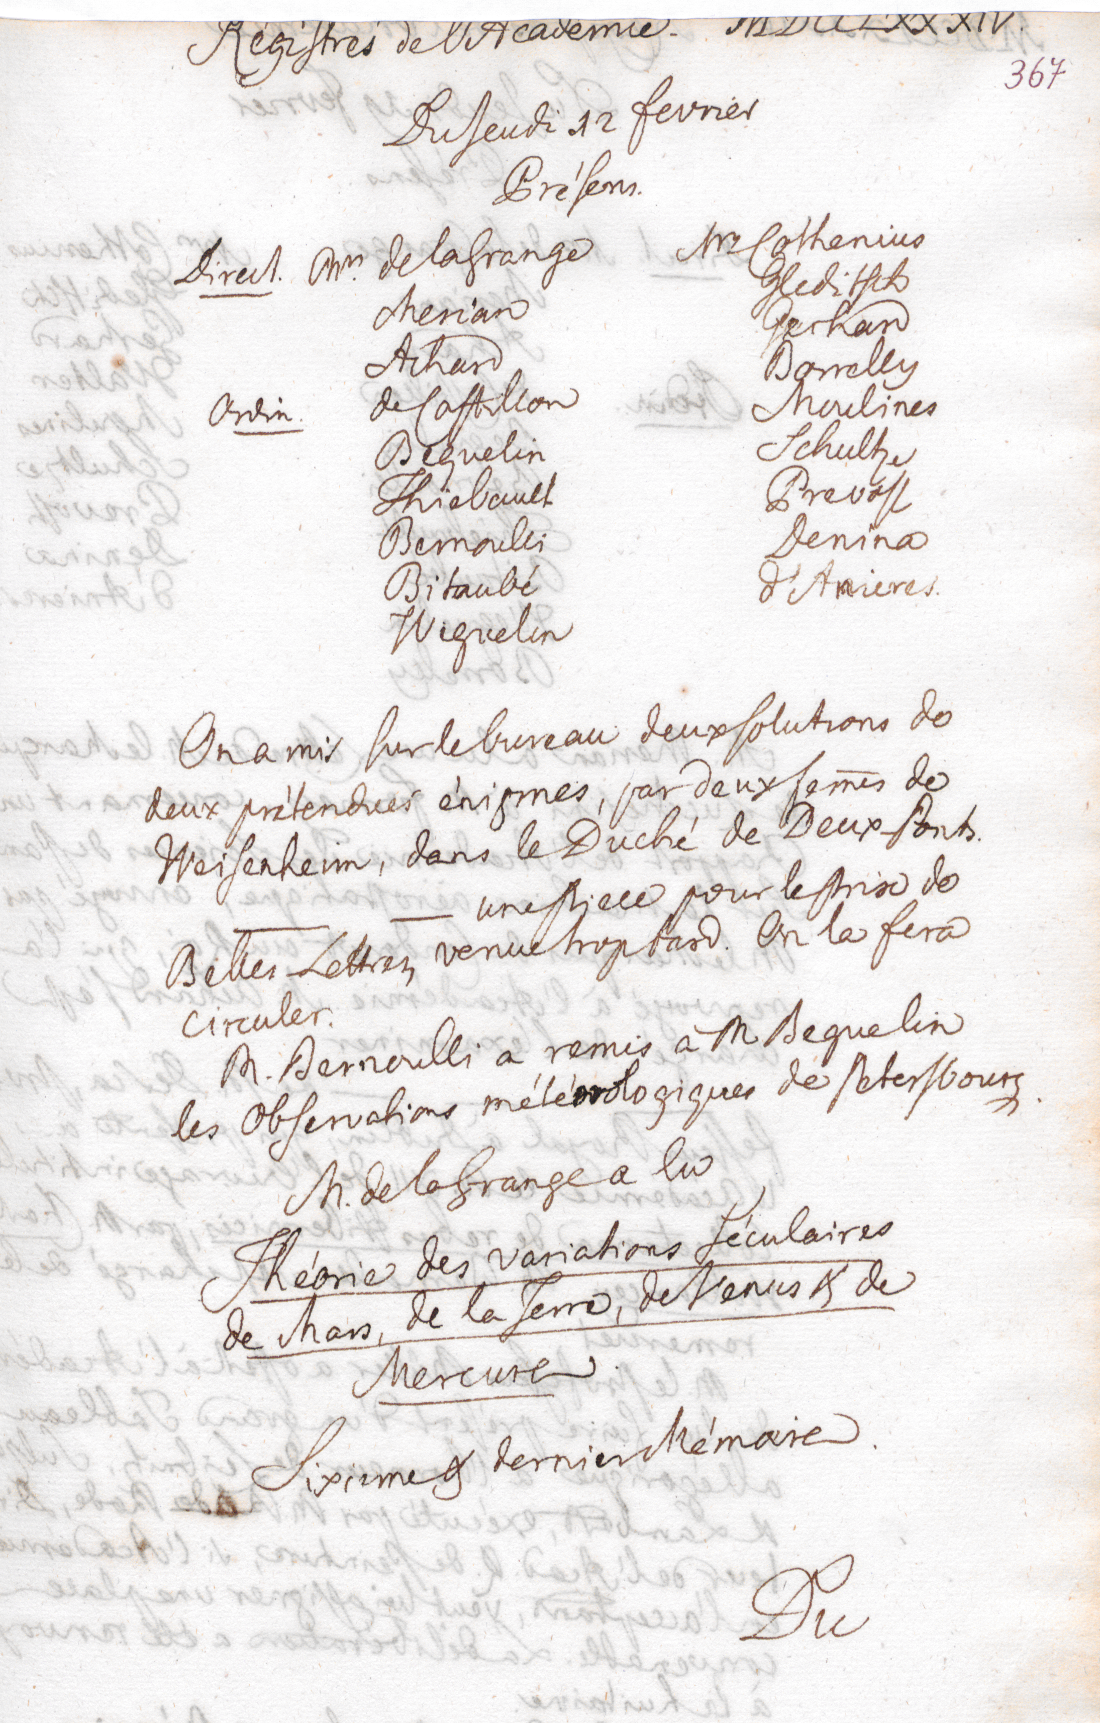 Régistres de l'Academie. MDCCLXXXIV.
367
Du Jeudi 12 fevrier
Présens.
Direct. Mrs de la Grange
Merian
Achard
Ordin. de Castillon
Beguelin
Thiebault
Bernoulli
Bitaubé
Weguelin
Mrs Cothenius
Gleditsch
Gerhard
Borrelly
Moulines
Schultze
Prevost
Denina
d'Anieres.
On a mis sur le bureau deux solutions de
deux prétendues énigmes, par deux femes de
Weisenheim, dans le Duché de Deux-Ponts.
— une piece pour le prix de
Belles-Lettres, venue trop tard. On la fera
circuler.
M. Bernoulli a remis à M Beguelin
les Observations météorologiques de Petersbourg.
M. de la Grange a lu
Théorie des variations séculaires
de Mars, de la Terre, de Venus & de
Mercure.
Sixieme & dernier Mémoire.
Du